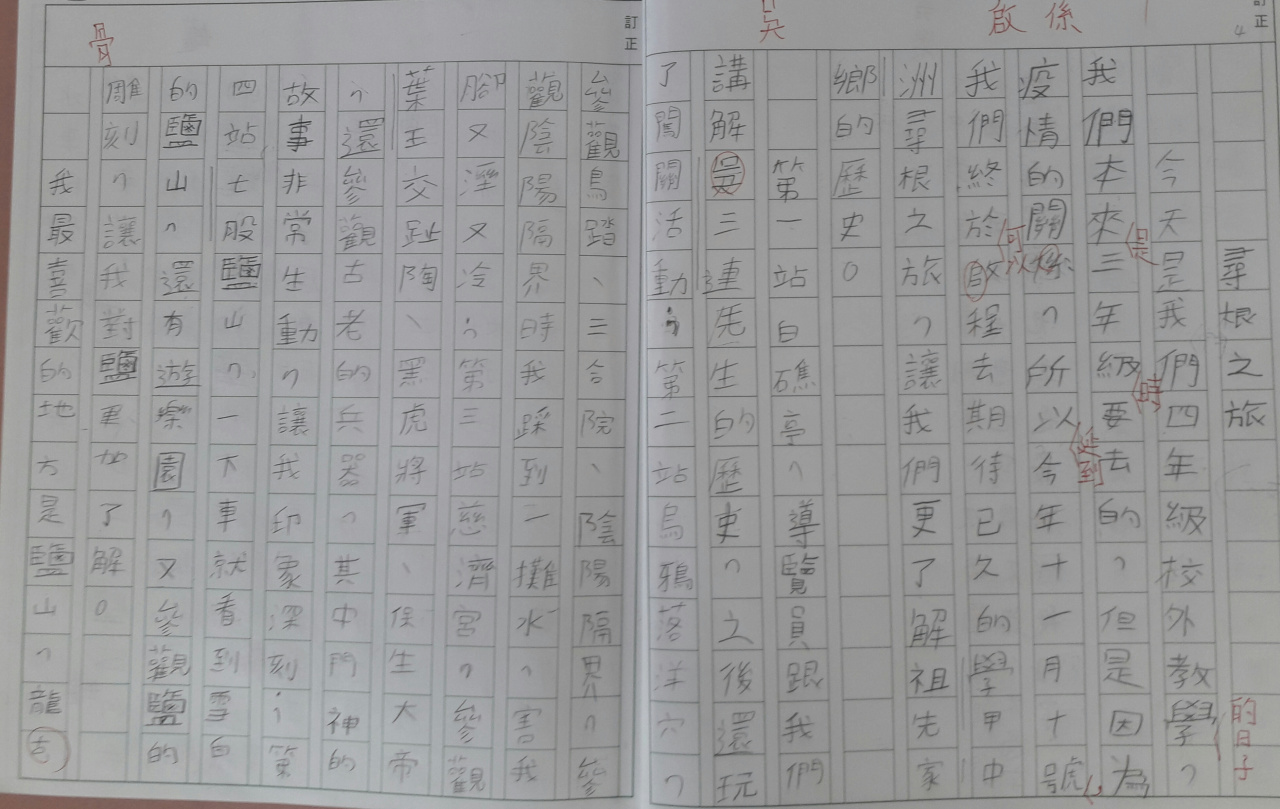 訂正
4
係
啟
吳
尋根之旅
今天是我們四年級校外教學,
的日子
我們本來三年級要去的,但是因為
是
時
疫情的關係,所以今年十一月十號
延到
我們終於啟程去期待已久的學甲中
可以
洲尋根之旅,讓我們更了解祖先家
鄉的歷史。
第一站白礁亭,導覽員跟我們
講解吳三連先生的歷史,之後還玩
了闖關活動;第二站烏鴉落洋穴,
訂正
骨
參觀鳥踏、三合院、陰陽隔界,參
觀陰陽隔界時我踩到一攤水,害我
腳又溼又冷;第三站慈濟宮,參觀
葉王交趾陶、黑虎將軍、保生大帝
,還參觀古老的兵器,其中門神的
故事非常生動,讓我印象深刻;第
四站七股鹽山,一下車就看到雪白
的鹽山,還有遊樂園,又參觀鹽的
雕刻,讓我對鹽更加了解。
我最喜歡的地方是鹽山,龍